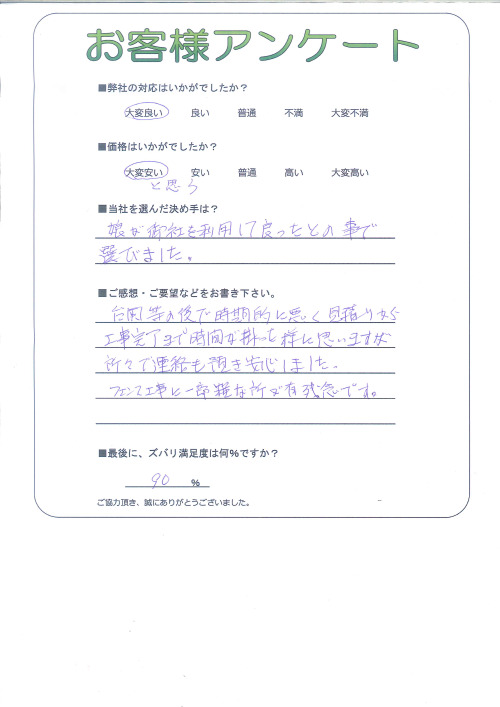 お客様アンケート
■弊社の対応はいかがでしたか？
大変良い 良い 普通 不満 大変不満
■価格はいかがでしたか？
大変安い 安い 普通 高い 大変高い
と思う
■当社を選んだ決め手は？
娘が御社を利用して良ったとの事で
選びました。
■ご感想・ご要望などをお書き下さい。
台風等の後で時期的に悪く見積りから
工事完了まで時間が掛った様に思いますが
所々で連絡も頂き安心しました。
フェンス工事に一部雑な所が有残念です。
■最後に、ズバリ満足度は何％ですか？
90 ％
ご協力頂き、誠にありがとうございました。